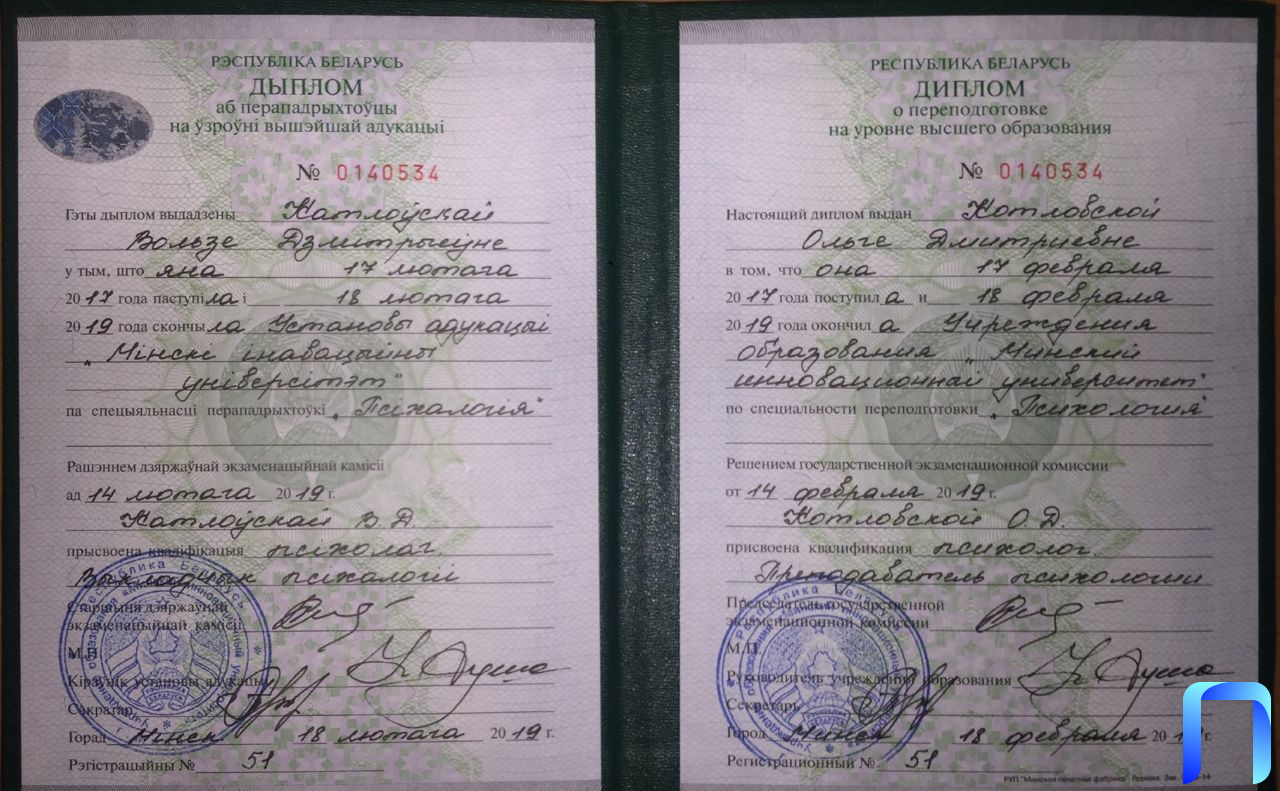 РЭСПУБЛІКА БЕЛАРУСЬ
ДЫПЛОМ
аб перападрыхтоўцы
на ўзроўні вышэйшай адукацыі
№ 0140534
Гэты дыплом выдадзены Катлоўскай
Вользе Дзмітрыеўне
у тым, што яна 17 лютага
2017 года паступіла і 18 лютага
2019 года скончыла Установы адукацыі
„Мінскі інавацыйны
універсітэт"
па спецыяльнасці перападрыхтоўкі „Псіхалогія"
Рашэннем дзяржаўнай экзаменацыйнай камісіі
ад 14 лютага 2019 г.
Катлоўскай В.Д.
прысвоена кваліфікацыя псіхолаг.
Выкладчык псіхалогіі
Старшыня дзяржаўнай
экзаменацыйнай камісіі
М.П.
Кіраўнік установы адукацыі
Сакратар
Горад Мінск 18 лютага 2019 г.
Рэгістрацыйны № 51
РЕСПУБЛИКА БЕЛАРУСЬ
ДИПЛОМ
о переподготовке
на уровне высшего образования
№ 0140534
Настоящий диплом выдан Котловской
Ольге Дмитриевне
в том, что она 17 февраля
2017 года поступила и 18 февраля
2019 года окончила Учреждения
образования „Минский
инновационный университет"
по специальности переподготовки „Психология"
Решением государственной экзаменационной комиссии
от 14 февраля 2019 г.
Котловской О.Д.
присвоена квалификация психолог.
Преподаватель психологии
Председатель государственной
экзаменационной комиссии
М.П.
Руководитель учреждения образования
Секретарь
Город Минск 18 февраля 20 г.
Регистрационный № 51
РУП "Минская печатная фабрика" Гознака. Зак.